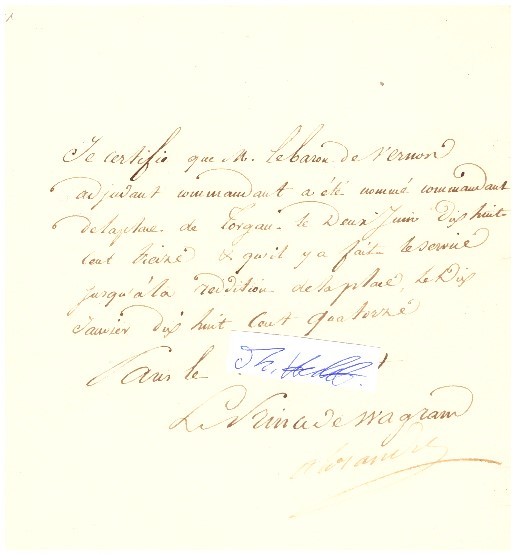 Je certifie que M. le baron de Vernon
adjudant commandant a été nommé commandant
de la place de Torgau le Deux Juin Dix huit
cent treize & qu'il y a fait le service
jusqu'à la reddition de la place, le Dix
Janvier Dix huit Cent quatorze
Paris le
Le Prince de Wagram
Alexandre